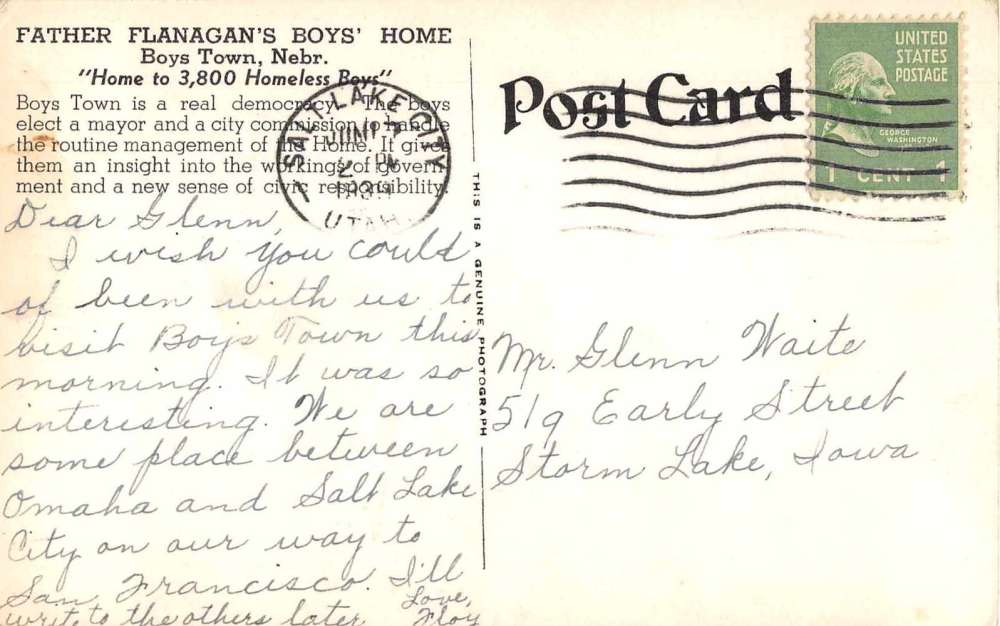 FATHER FLANAGAN'S BOYS' HOME
Boys Town, Nebr.
"Home to 3,800 Homeless Boys"
Boys Town is a real democracy. The boys
elect a mayor and a city commission to handle
the routine management of the Home. It gives
them an insight into the workings of govern-
ment and a new sense of civic responsibility.
Dear Glenn,
I wish you could
of been with us to
visit Boys Town this
morning. It was so
interesting. We are
some place between
Omaha and Salt Lake
City on our way to
San Francisco. I'll
write to the others later
Love,
Floy
THIS IS A GENUINE PHOTOGRAPH
Post Card
SALT LAKE CITY
JUN
1939
UTAH
UNITED
STATES
POSTAGE
GEORGE
WASHINGTON
1 CENT 1
Mr. Glenn Waite
519 Early Street
Storm Lake, Iowa